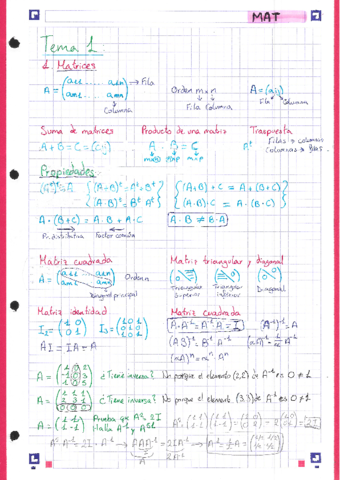 MAT
Tema 1
1. Matrices
A = (a11 ..... a1n / am1 ..... amn) → Fila
Columna
Orden m×n
Fila Columna
A = (aij)
Fila Columna
Suma de matrices
A + B = C = (cij)
Producto de una matriz
A · B = C
Traspuesta
At
Filas → columnas
Columnas → filas
Propiedades
(At)t = A
(A+B)t = At + Bt
(A·B)t = Bt · At
(A+B) + C = A + (B+C)
(A·B)·C = A·(B·C)
A·(B+C) = A·B + A·C
P. distributiva Factor común
A·B ≠ B·A
Matriz cuadrada
Orden n
Diagonal principal
Matriz triangular y diagonal
Triangular superior
Triangular inferior
Diagonal
Matriz identidad
I2 = (1 0 / 0 1) I3 = (1 0 0 / 0 1 0 / 0 0 1)
AI = IA = A
Matriz cuadrada
A·A-1 = A-1·A = I
(A-1)-1 = A
(AB)-1 = B-1 A-1
(nA)n = nn · An
¿Tiene inversa? No porque el elemento (2,2) de
¿Tiene inversa? No porque el elemento (3,3) de A-1 es 0 ≠ 1
A = (1 1 / 1 -1) Prueba que A2 = 2I
Halla A-1 y